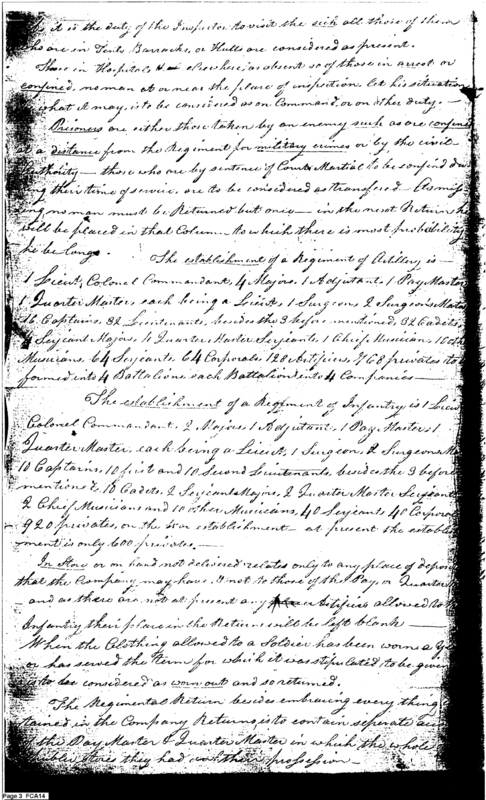 it is the duty of the Inspector to visit the sick all those of them
who are in Tents Barracks, or Hutts are considered as present.
Those in Hospitals, elsewhere as absent so of those in arrest or
confined, no man at or near the place of inspection let his situation
what it may, is to be considered as on Command, or on other duty. —
Prisoners are either those taken by an enemy such as are confined
at a distance from the Regiment for military crimes or by the civil
thority — those who are by sentence of Courts Martial to be confind du
ing their time of service, are to be considered as transfered — As miss
ing no man must be Returned but once — in the next Return he
will be placed in that Column to which there is most probability
he belongs.
The establishment of a Regiment of Artillery is —
1 Lieut. Colonel Commandant, 4 Majors, 1 Adjutant, 1 Pay Master
1 Quarter Master, each being a Lieut, 1 Surgeon, 2 Surgeons Mates
16 Captains, 32 Lieutenants, besides the 3 before mentioned, 32 Cadets,
4 Serjeant Majors, 4 Quarter Master Serjeants, 1 Chief Musician, 10 other
Musicians, 64 Serjeants, 64 Corporals, 128 Artificers, 768 privates to
formed into 4 Battalions each Battalion into 4 Companies —
The establishment of a Regiment of Infantry is 1 Lieut
Colonel Commandant, 2 Majors, 1 Adjutant, 1 Pay Master, 1
Quarter Master, each being a Lieut, 1 Surgeon, 2 Surgeons Ma
10 Captains, 10 first and 10 Second Lieutenants, besides the 3 before
mentioned, 10 Cadets, 2 Serjeants Majors, 2 Quarter Master Serjeants
2 Chief Musicians and 10 other Musicians, 40 Serjeants 40 Corporals
920 privates, on the War establishment — at present the establish
ment is only 600 privates. —
In Store or on hand not delivered relates only to any place of deposit
that the Company may have, & not to those of the Pay, or Quarter M
and as there are not at present any artificers allowed to the
Infantry their place in the Return will be left blank —
When the Clothing allowed to a Soldier has been worn a ye
or has served the term for which it was stipulated to be give
is to be considered as worn out and so returned.
The Regimental Return besides embracing every thing
tained in the Company Returns, is to contain seperate
the Pay Master & Quarter Master in which the whole
Stores they had in their possession —
Page 3 FCA14